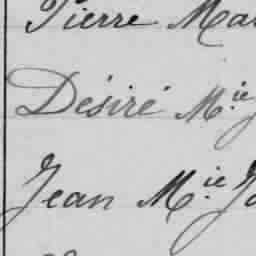 Pierre Mar
Désiré M.ie
Jean M.ie Jo